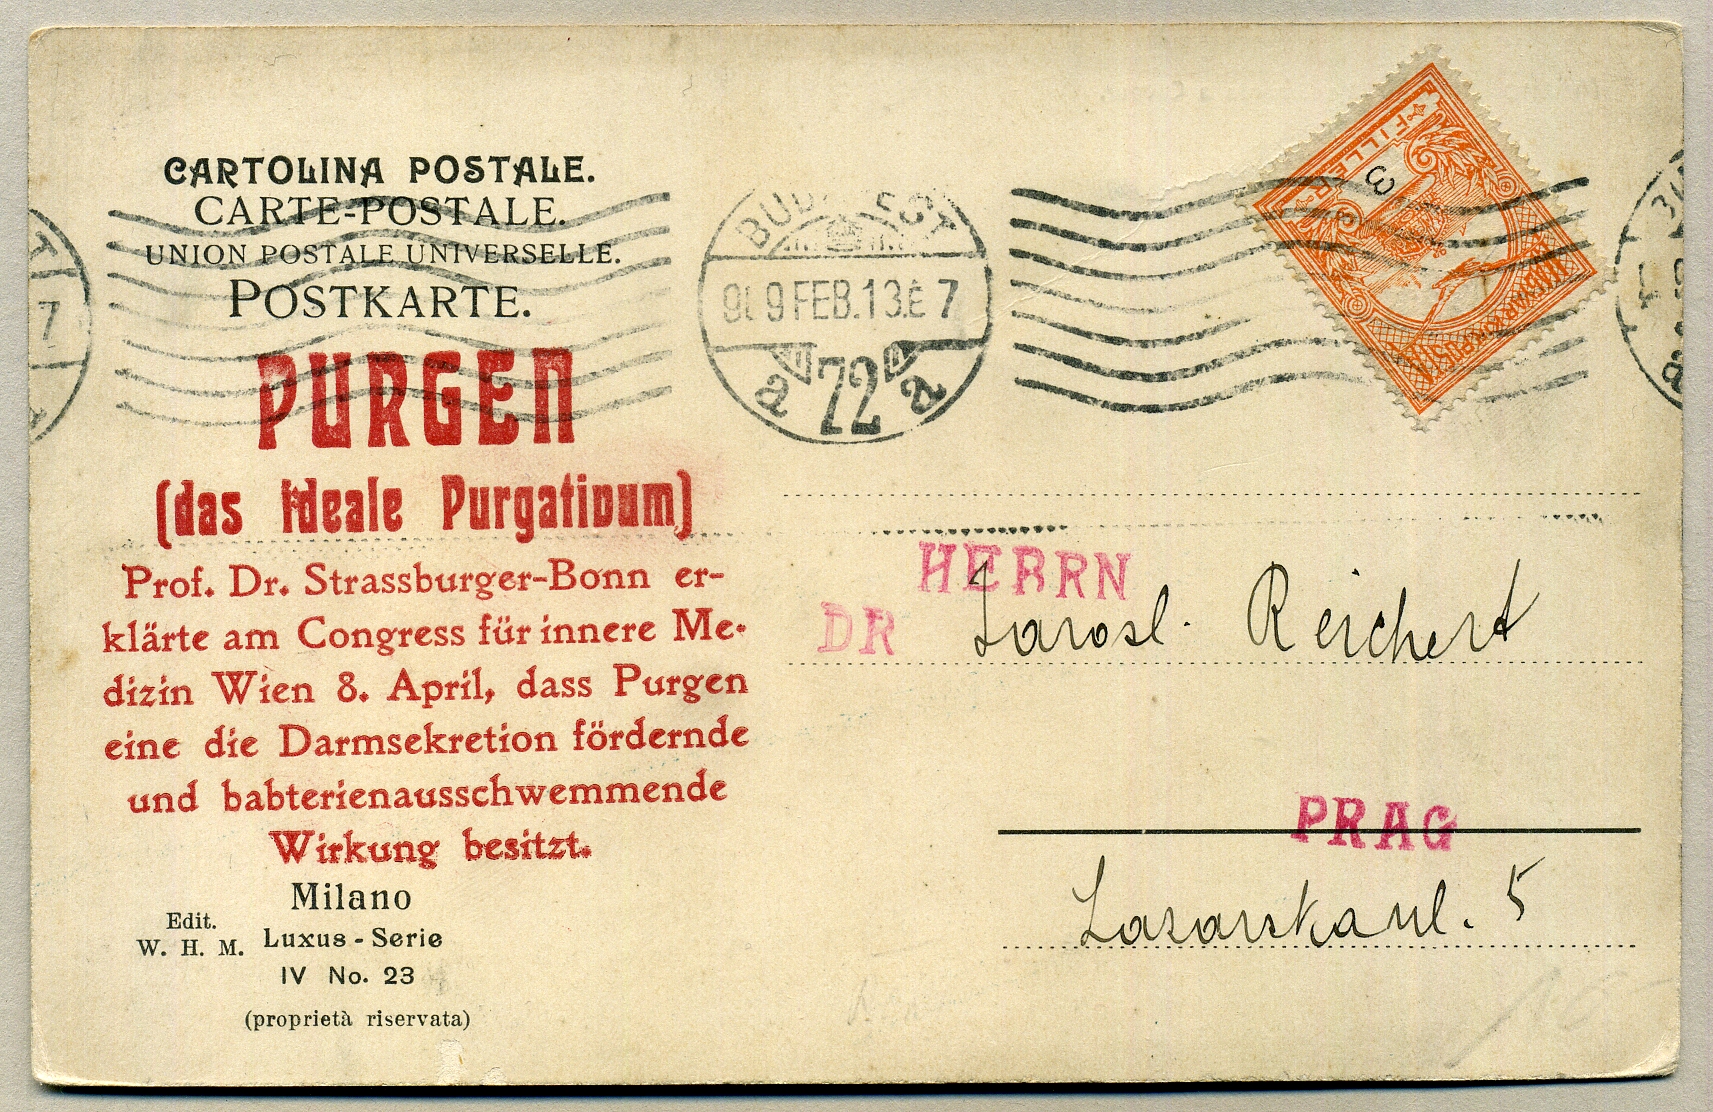 CARTOLINA POSTALE.
CARTE-POSTALE.
UNION POSTALE UNIVERSELLE.
POSTKARTE.
PURGEN
(das Ideale Purgativum)
Prof. Dr. Strassburger-Bonn er-
klärte am Congress für innere Me-
dizin Wien 8. April, dass Purgen
eine die Darmsekretion fördernde
und babterienausschwemmende
Wirkung besitzt.
Milano
Edit.
W. H. M.
Luxus-Serie
IV No. 23
(proprietà riservata)
9 FEB. 13
7
a 72 a
7
FILLER
3
HERRN
DR
Jarosl. Reichert
PRAG
Lazarskaul. 5